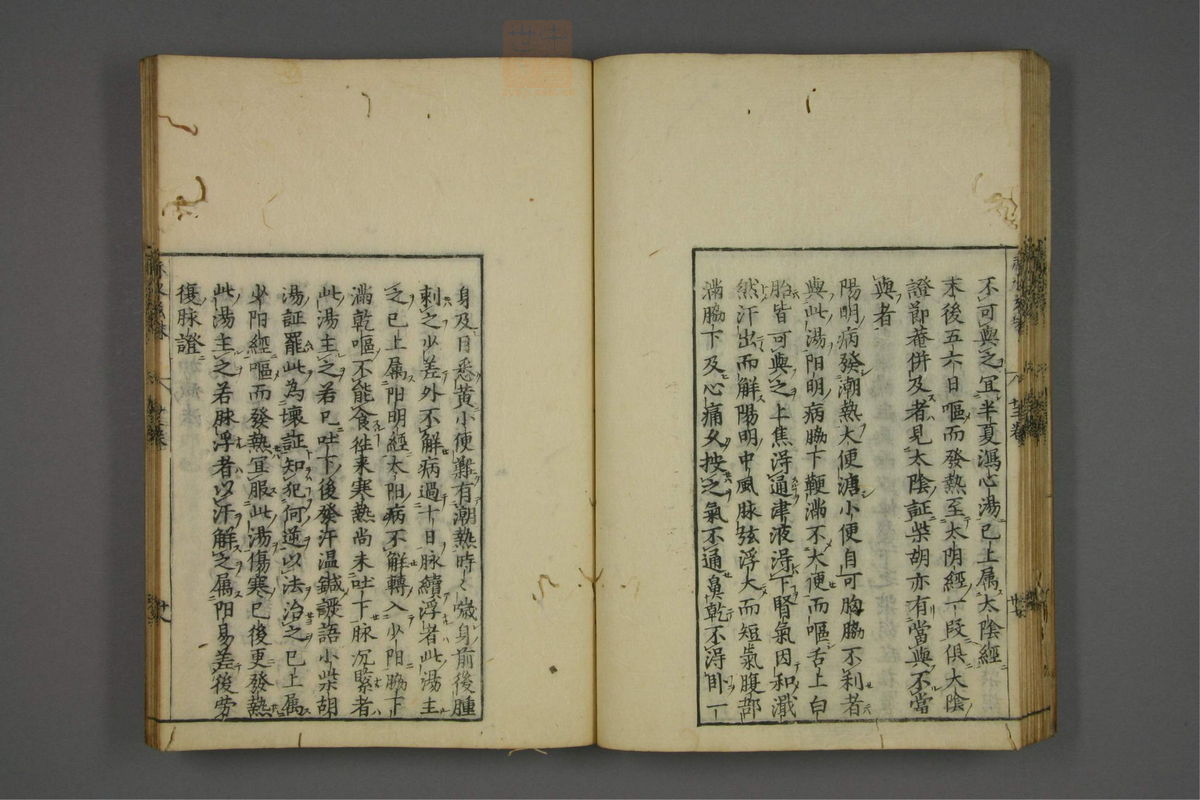 不可與之宜半夏瀉心湯已上属太陰經
末後五六日嘔而發熱至太阴經一段俱太陰
證節菴併及者見太陰証柴胡亦有當與不當
與者
陽明病發潮熱大便溏小便自可胸脇不刹者
與此湯阳明病脇下鞕満不大便而嘔舌上白
胎皆可與之上焦淂通津液淂下腎氣因和濈
然汗出而解陽明中風脉弦浮大而短氣腹部
満脇下及心痛久按之氣不通鼻乾不淂卧一
身及目悉黄小便難有潮熱時〻噦身前後腫
刺之少差外不解病過十日脉續浮者此湯主
之已上属阳明經太阳病不解轉入少阳脇下
満乾嘔不能食徃来寒熱尚未吐下脉沉緊者
此湯主之若已吐下後發汗温鍼譫語小柴胡
湯証罷此為壊証知犯何逆以法治之已上属
少阳經嘔而發熱宜服此湯傷寒已後更發熱
此湯主之若脉浮者以汗解之属阳易差後劳
復脉證